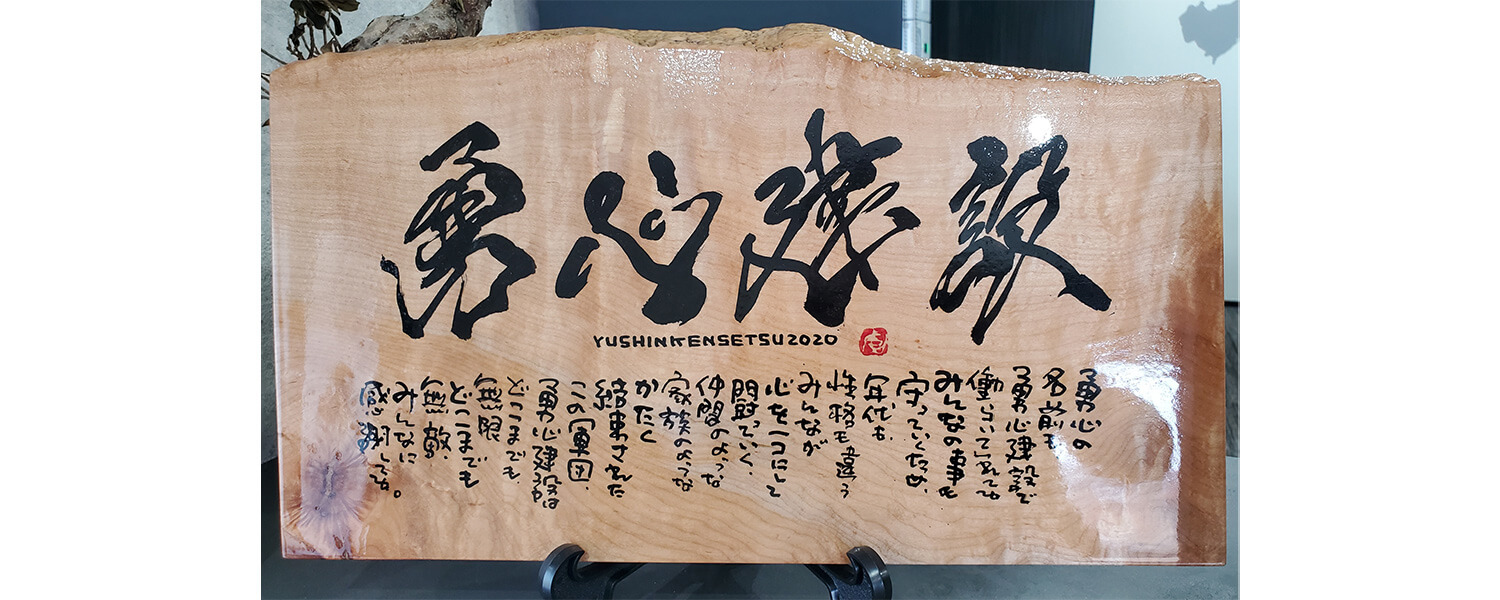 勇心建設
YUSHINKENSETSU2020
勇心の
名前も
勇心建設で
働らいてくれてる
みんなの事も
守っていくため、
年代も、
性格も違う
みんなが
心を一つにして
闘っていく、
仲間のような
家族のような
かたく
結束された
この軍団、
勇心建設は
どこまでも、
無限
どこまでも
無敵、
みんなに
感謝してる。